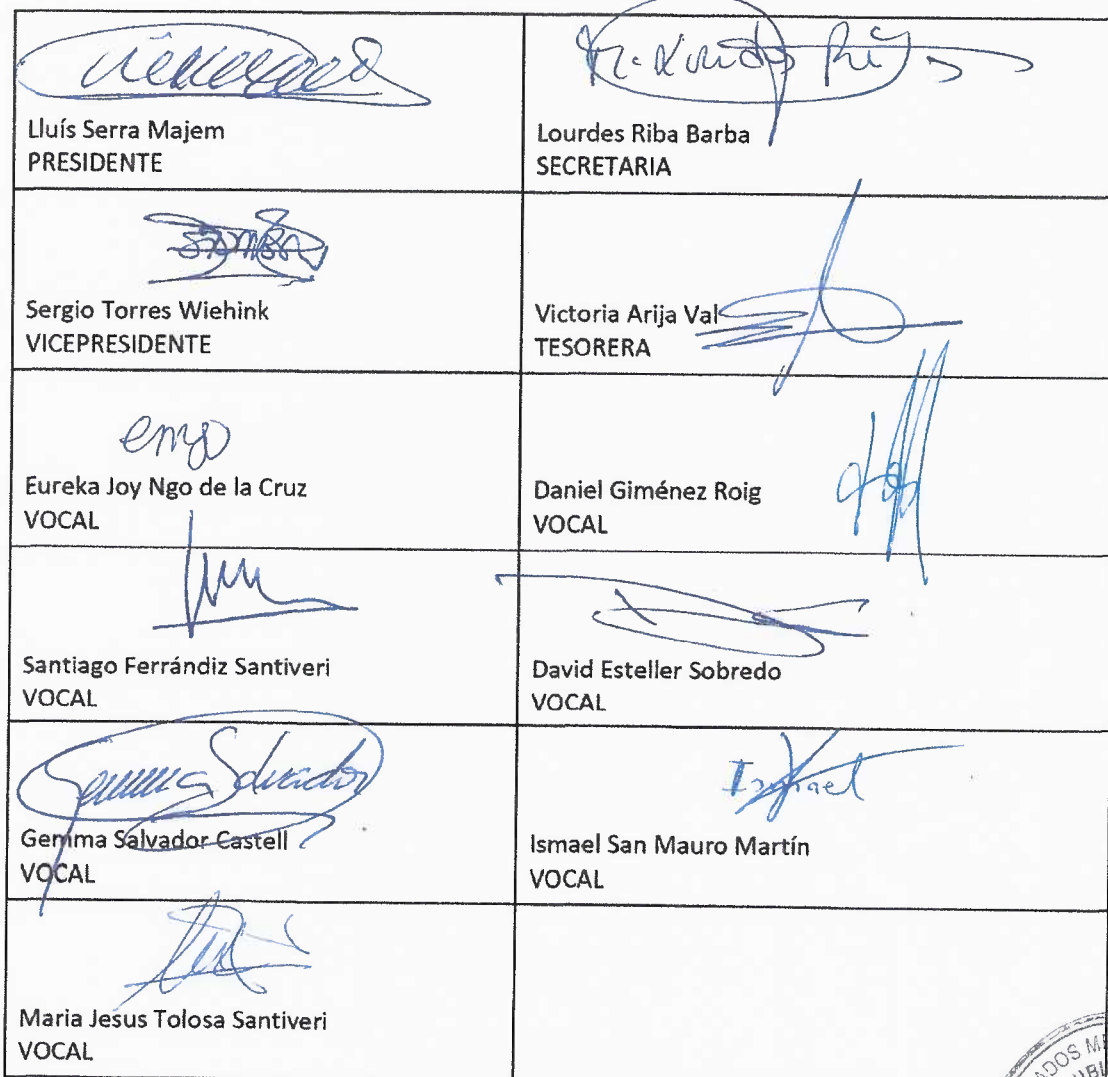 Lluís Serra Majem
PRESIDENTE
Lourdes Riba Barba
SECRETARIA
Sergio Torres Wiehink
VICEPRESIDENTE
Victoria Arija Val
TESORERA
emjo
Eureka Joy Ngo de la Cruz
VOCAL
Daniel Giménez Roig
VOCAL
Santiago Ferrándiz Santiveri
VOCAL
David Esteller Sobredo
VOCAL
Gemma Salvador
Gemma Salvador Castell
VOCAL
Ismael
Ismael San Mauro Martín
VOCAL
Maria Jesus Tolosa Santiveri
VOCAL